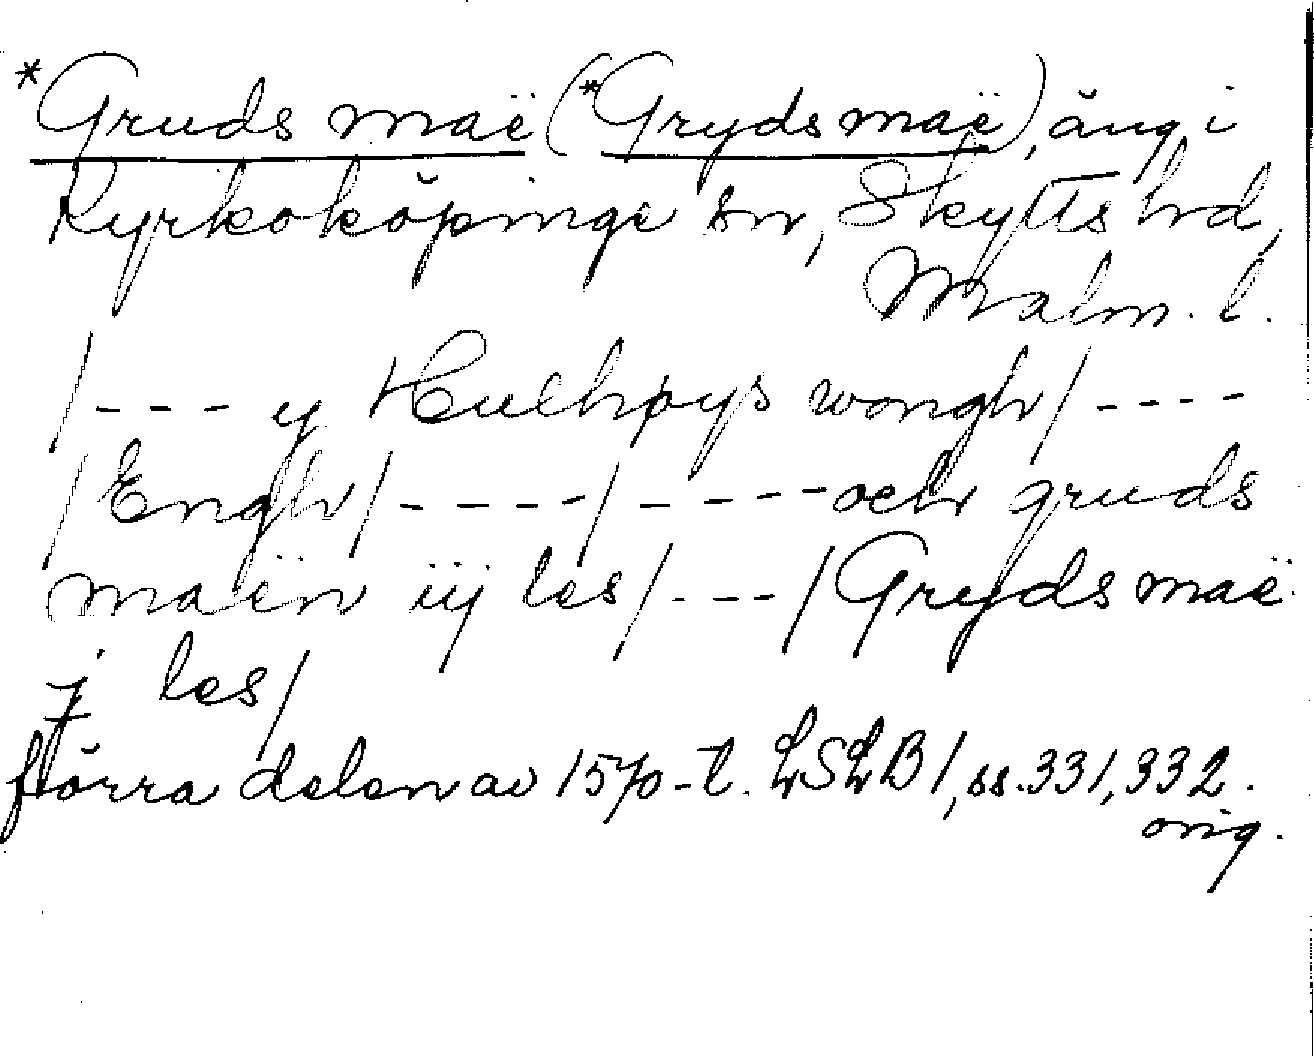 *Gruds maë (*Grydsmaë), äng i
Kyrkoköpinge sn, Skytts hrd,
Malm. l.
/--- y Hulhøys wongh/----
/Engh/-----/----och gruds
maën iij les/---/Grydsmaë
j les/
förra delen av 1570-t. LSLB1, ss. 331, 332.
orig.